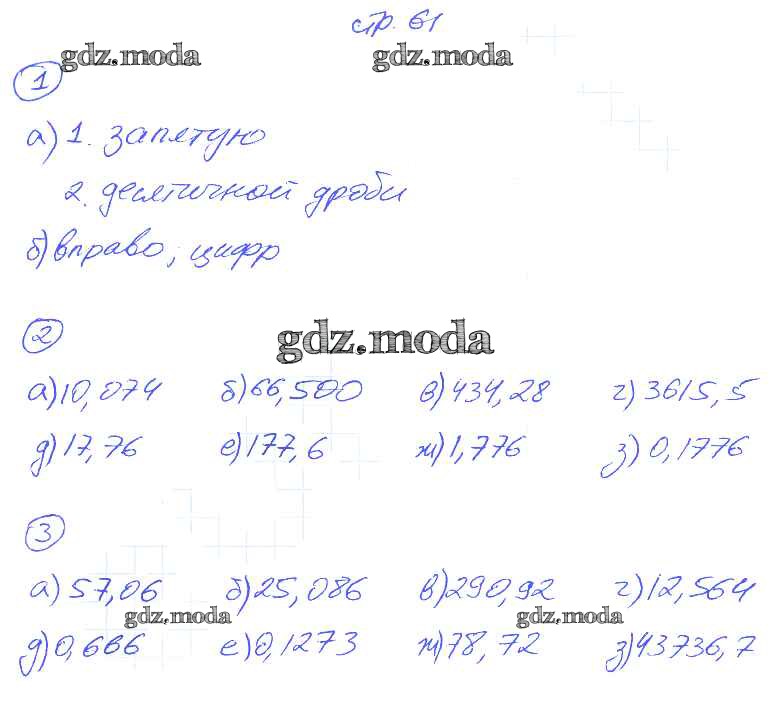 стр. 61
gdz.moda gdz.moda
1
а) 1. запятую
2. десятичной дроби
б) вправо; цифр
2
gdz.moda
а) 10,074 б) 66,500 в) 434,28 г) 3615,5
д) 17,76 е) 177,6 ж) 1,776 з) 0,1776
3
а) 57,06 б) 25,086 в) 290,92 г) 12,564
gdz.moda gdz.moda
д) 0,666 е) 0,1273 ж) 78,72 з) 43736,7